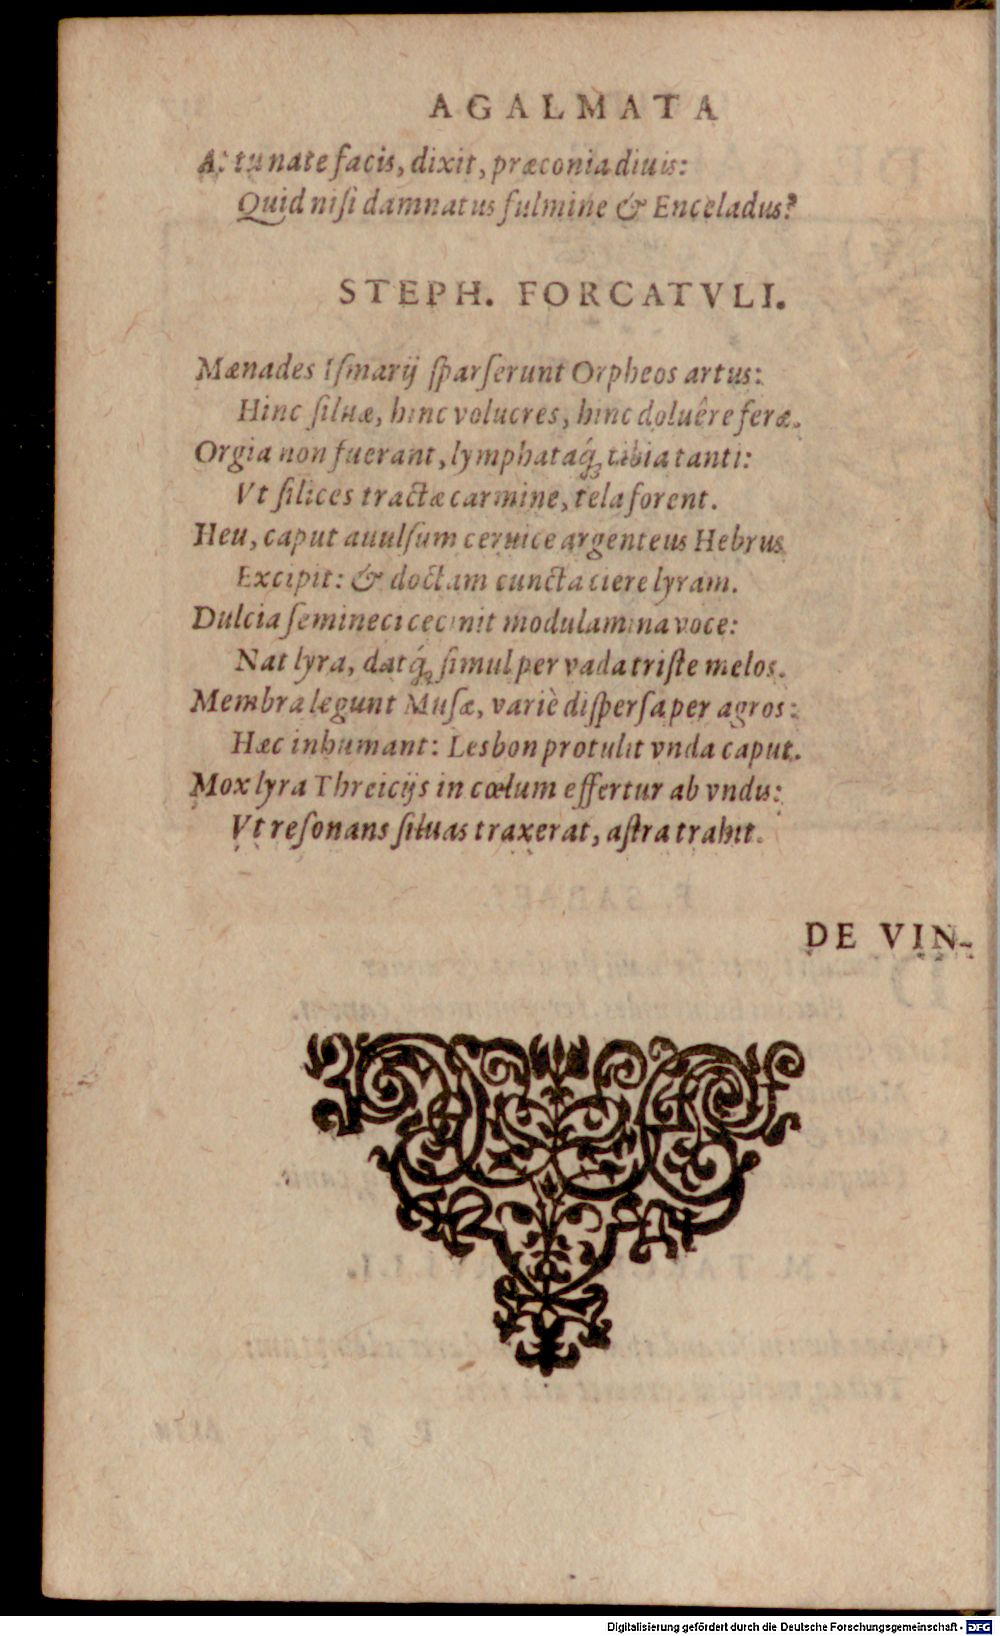 AGALMATA
At tu nate facis, dixit, præconia diuis:
Quid nisi damnatus fulmine & Enceladus?
STEPH. FORCATVLI.
Mænades Iſmarij ſparſerunt Orpheos artus:
Hinc ſiluæ, hinc volucres, hinc doluêre feræ.
Orgia non fuerant, lymphataq́; tibia tanti:
Vt ſilices tractæ carmine, tela forent.
Heu, caput auulſum ceruice argenteus Hebrus
Excipit: & doctam cuncta ciere lyram.
Dulcia ſemineci cecinit modulamina voce:
Nat lyra, datq́; ſimul per vada triſte melos.
Membra legunt Muſæ, variè diſperſa per agros:
Hæc inhumant: Lesbon protulit vnda caput.
Mox lyra Threicijs in cœlum effertur ab vndis:
Vt reſonans ſiluas traxerat, aſtra trahit.
DE VIN-
Digitalisierung gefördert durch die Deutsche Forschungsgemeinschaft - DFG